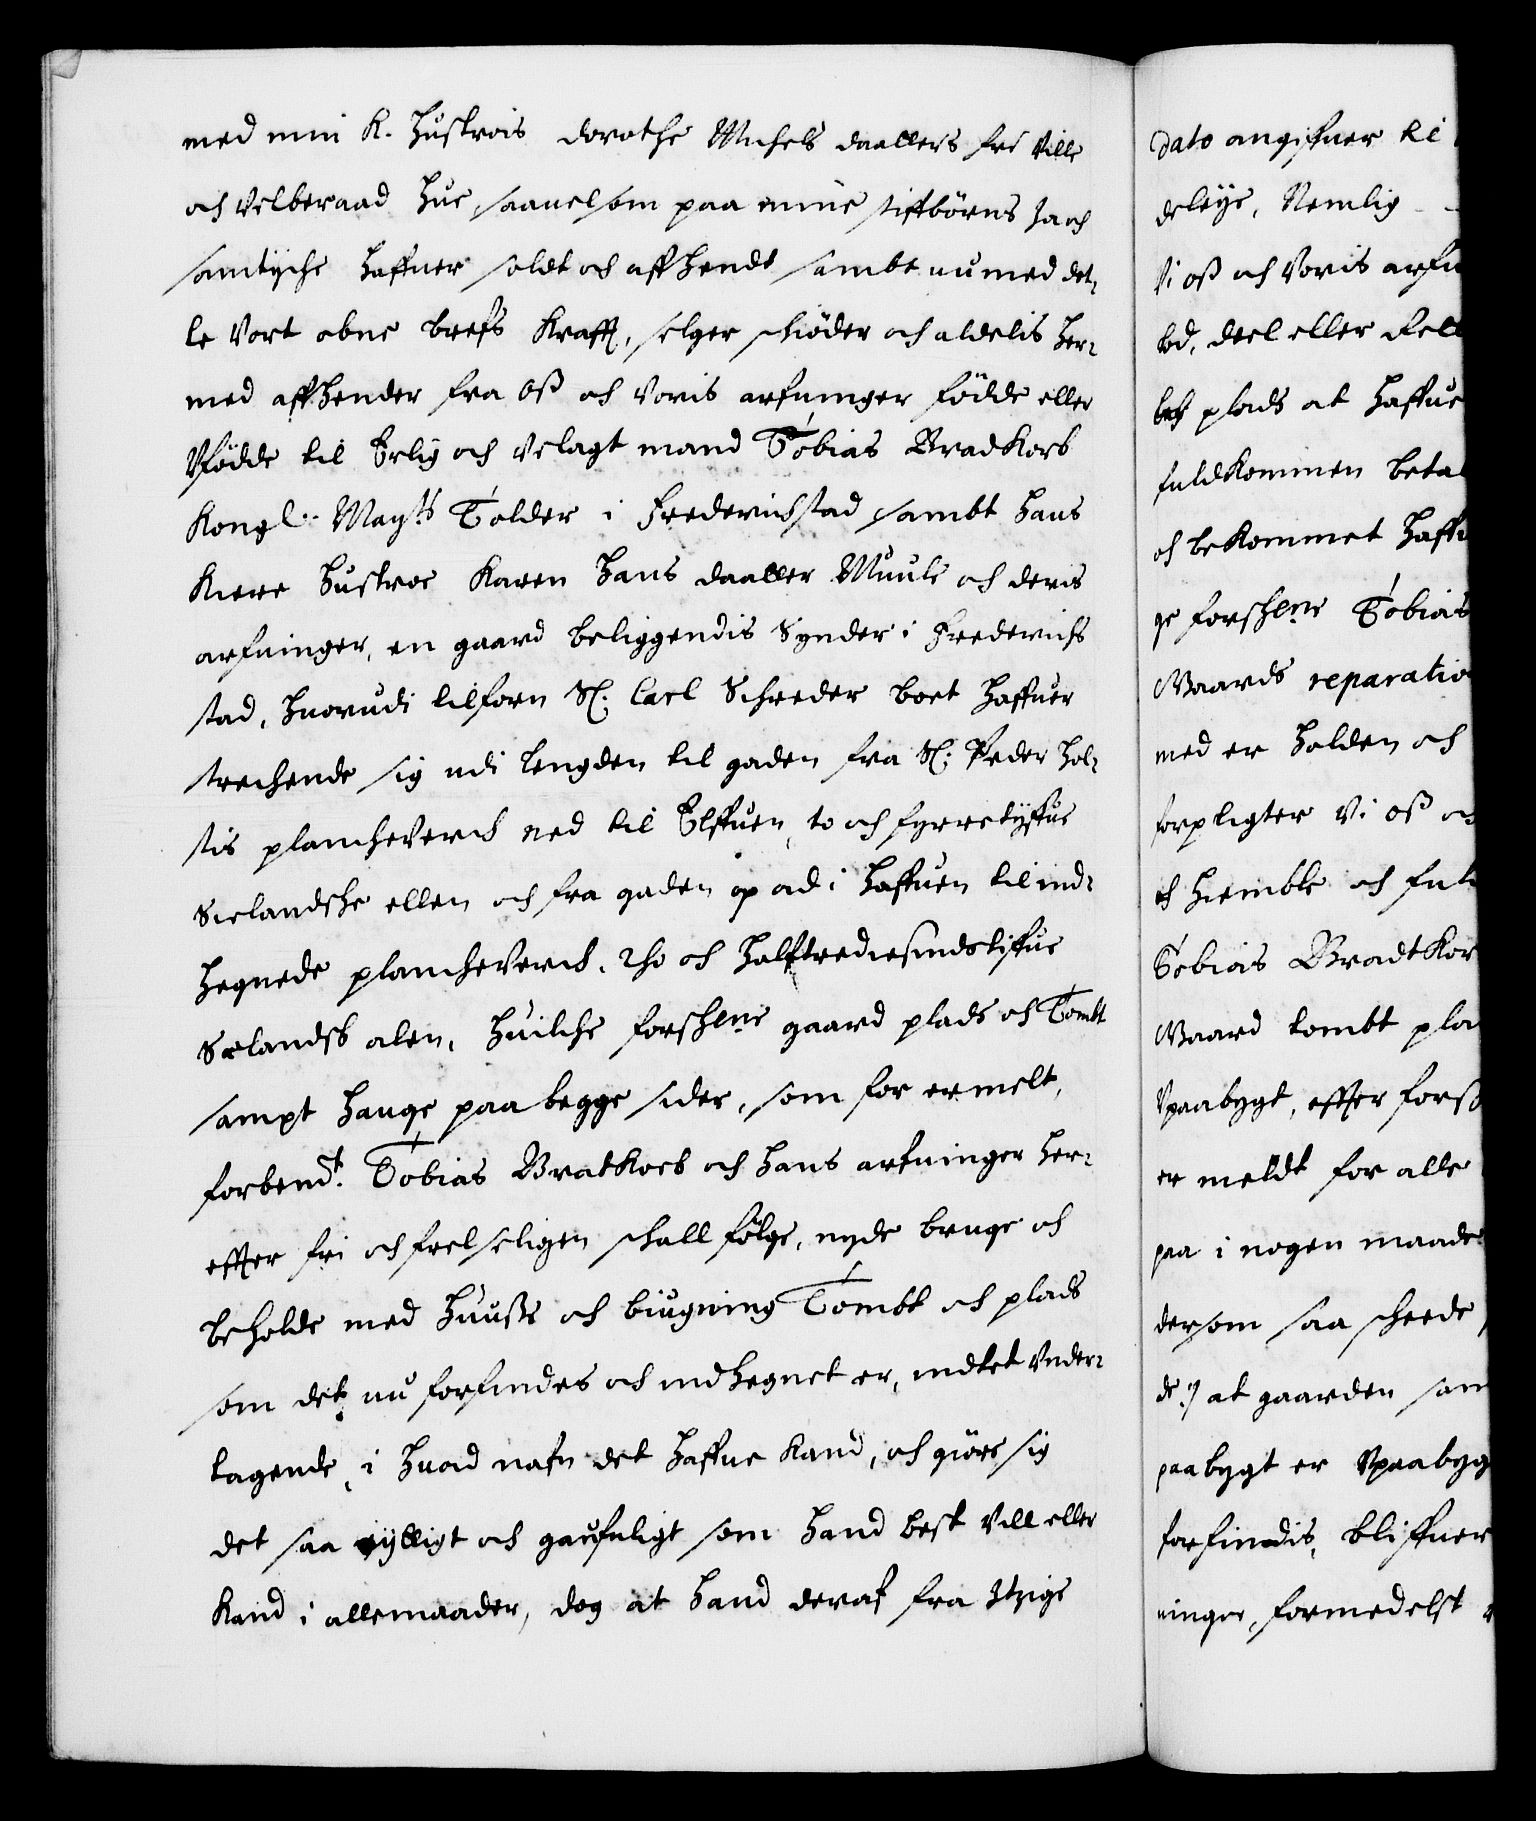 med min K. Hustrois dorothe Michels daatters frj Ville
och Velberaad Hue, saauelsom paa mine stiftbörns Ja och
samtyche Haffuer soldt och affhendt sambt nu med det¬
te Vort obne brefs Krafft, selger schiöder och aldelis her¬
med affhender fra oß och Voris arfuinger födde eller
Vfödde til Erlig och Velagt mand Tobias Bradkorb
Kongl. Mayts Tolder i Frederichstad sambt Hans
Kiere Hustroe Karen Hans daatter Muule och deris
arfuinger, en gaard beliggendis Synder i Frederichs
stad, Huorudi tilforn Sl. Carl Schreder boet Haffuer
strechende sig udi lengden til gaden fra Sl. Peder Hol¬
stis plancheverch ned til Elffuen, to och fyrretyffue
Sielandsche ellen och fra gaden op ad i Haffuen til ind¬
hegnede plancheverch, Tho och Halftrediesindstiffue
Sælandsk alen, Huilche forschene gaard plads och Tombt
sampt Hauge paa begge sider, som for ermelt,
forbendt. Tobias Bratkorb och Hans arfuinger Her¬
effter fri och frelseligen schall fölge, nyde bruge och
beholde med Huuße och biugning Tombt och plads
som det nu forfindes och indhegnet er, indtet Vnder¬
tagende, i Huad nafn det Haffue Kand, och giöre sig
det saa nylligt och gaufnligt som Hand best Vill eller
Kand i alle maader, dog at Hand deraf fra Itzige
dato angifuer til
deleye, Nemlig
Vi oß och Voris arfu
lod, deel eller Rett
plads at Haffue
fuldkommen beta
och bekommet Haffu
ge forschene Tobias
Gaards reparatio
med er Holden och
forpligter Vi oß oc
at Hiemble och ful
Tobias Bradtkor
Gaard tombt pla
Vpaabygt, effter forß
er meldt for alle
paa i nogen maade
dersom saa scheede
de:/ at gaarden sam
paabygt er Vpaabyg
forfindis, bliffuer
uinger, formedelst